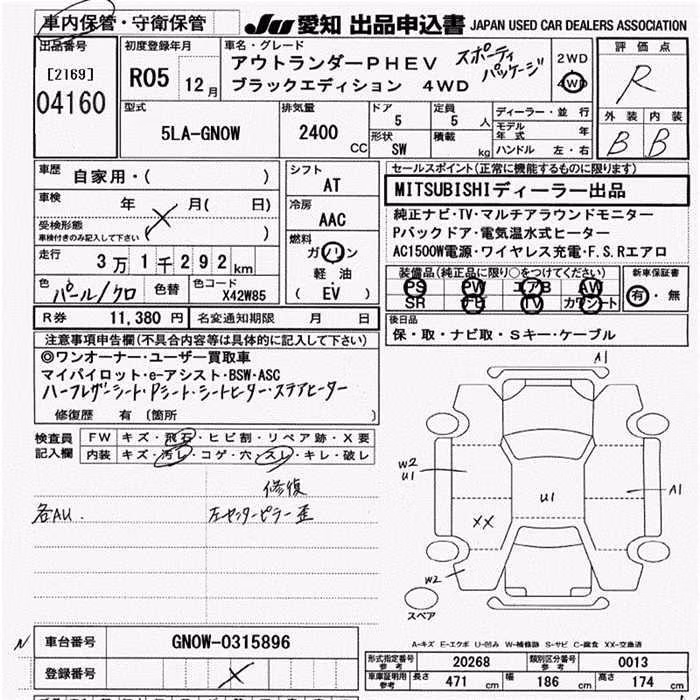 車内保管・守衛保管
JU 愛知 出品申込書 JAPAN USED CAR DEALERS ASSOCIATION
出品番号
[2169]
04160
初度登録年月
R05 12月
車名・グレード
アウトランダーPHEV スポーティ
ブラックエディション 4WD パッケージ
2WD
4WD
評価点
R
外装 内装
B B
型式
5LA-GN0W
排気量
2400 CC
ドア
5
定員
5 人
形状
SW
積載
kg
ディーラー・並行
モデル年式 年
ハンドル 左・右
車歴
自家用・( )
車検 年 月( 日)
受検形態
車検付きのみ記入して下さい ( )
走行 3万1千292km
色 パール/クロ 色替 色コード X42W85
シフト
AT
冷房
AAC
燃料
ガソリン
軽油
( EV )
セールスポイント(正常に機能するものに限ります)
MITSUBISHIディーラー出品
純正ナビ・TV・マルチアラウンドモニター
Pバックドア・電気温水式ヒーター
AC1500W電源・ワイヤレス充電・F.S.Rエアロ
装備品(純正品に限り○をつけてください)
PS PW エアB AW
SR ナビ TV カワシート
新車保証書
有・無
R券 11,380円 名変通知期限 月 日
後日品
保・取・ナビ取・Sキー・ケーブル
注意事項申告欄(不具合内容等は具体的に記入して下さい)
◎ワンオーナー・ユーザー買取車
マイパイロット・e-アシスト・BSW・ASC
ハーフレザーシート・Pシート・シートヒーター・ステアヒーター
修復歴 有 (箇所 )
検査員記入欄
FW キズ・飛石・ヒビ割・リペア跡・X要
内装 キズ・汚レ・コゲ・穴・スレ・キレ・破レ
修復
各AU. 左センターピラー歪
A1
W2
U1
U1
A1
XX
W2
スペア
A-キズ E-エクボ U-凹み W-補修跡 S-サビ C-腐食 XX-交換済
N 車台番号 GN0W-0315896
登録番号
形式指定番号 参考 20268 類別区分番号 参考 0013
車庫証明用 参考 長さ 471 cm 幅 186 cm 高さ 174 cm